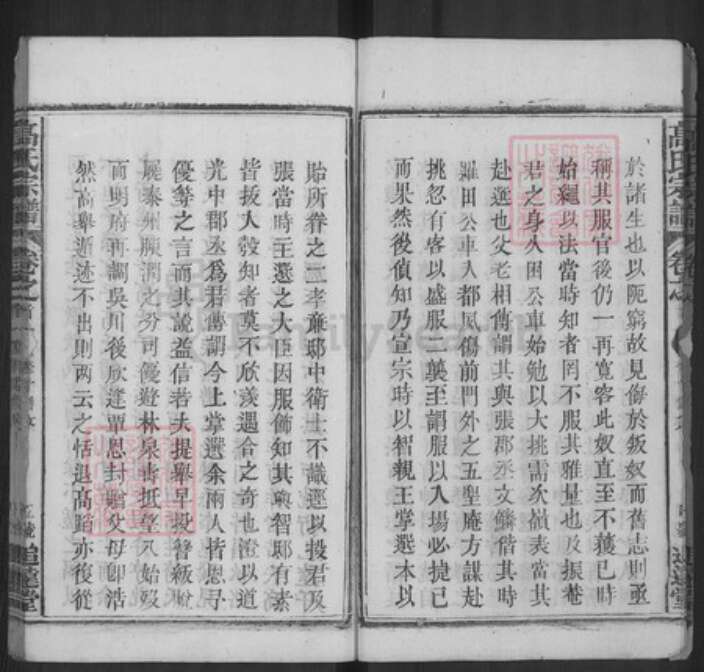 於諸生也以阨窮故見侮於叛奴而舊志則亟
稱其服官後仍一再寬容此奴直至不獲已時
始繩以法當時知者罔不服其雅量也及振菴
君之身久困公車始勉以大挑需次嶺表富其
赴選也父老相傳謂其與張郡丞文鱗偕其時
羅田公車入都感傷前門外之五聖庵方謀赴
挑忽有客以盛服二襲至謂服以入場必捷已
而果然後偵知乃宣宗時以智親王掌選本以
貽所眷之二孝廉邸中衛士不識逕以投君及
張當時王選之大臣因服飾知其與智邸有素
皆拔入彀知者莫不欣羨遇合之奇也澄以道
光中郡丞爲君傳謂今上掌選余兩人皆恩寻
優等之言而其說益信若夫提舉早
展泰州
而明府再調吳川後欣逢覃恩封贈父母卽浩
然高舉遁迹不出則两云之恬退高蹈亦復從
高氏宗譜
卷之首
追遠堂
高氏宗譜
卷之
追遠堂
FamilySearch